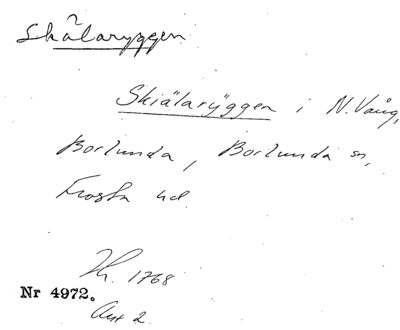 Skälaryggen
Skiälarÿggen i N. Vång,
Borlunda, Borlunda sn,
Frosta hd
1768
Nr 4972.
Akt 2.